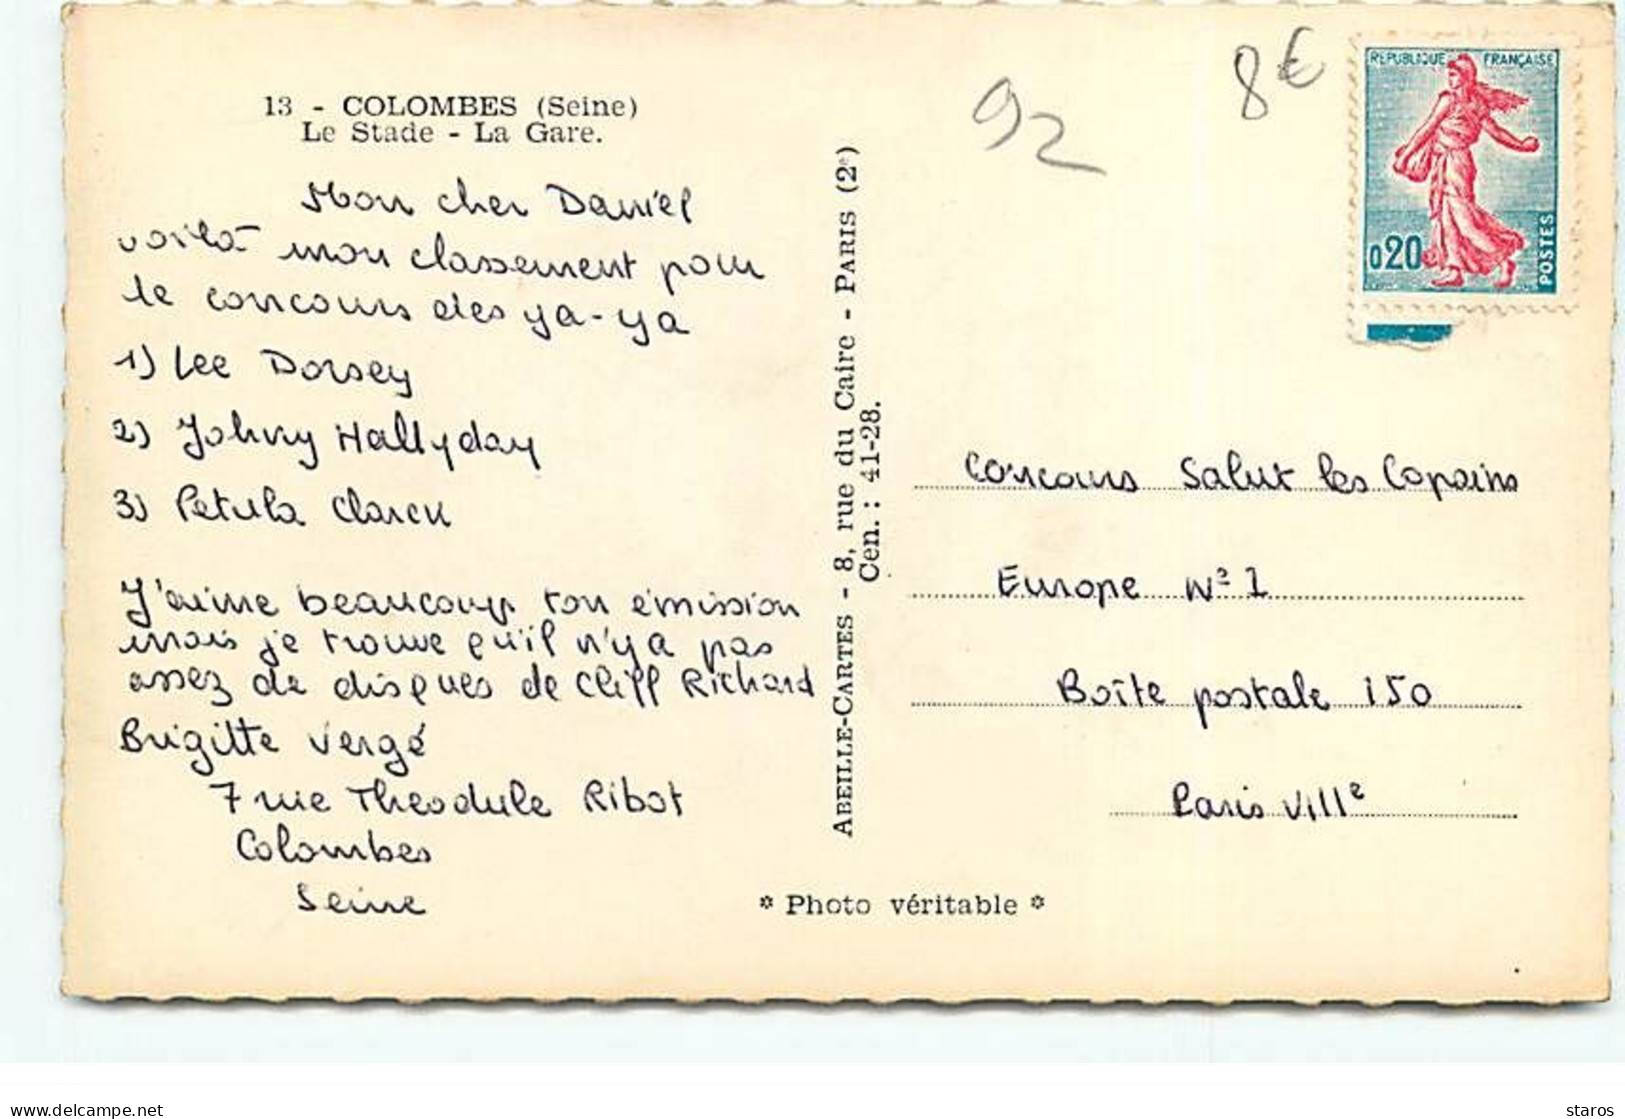 13 - COLOMBES (Seine)
Le Stade - La Gare.
Mon cher Daniel
voilà mon classement pour
le concours des ya-ya
1) Lee Dorsey
2) Johny Hallyday
3) Petula Clarck
J'aime beaucoup ton émission
mais je trouve qu'il n'y a pas
assez de disques de Cliff Richard
Brigitte Vergé
7 rue Theodule Ribot
Colombes
Seine
ABEILLE-CARTES - 8, rue du Caire - PARIS (2e)
Cen. : 41-28.
* Photo véritable *
92
8€
REPUBLIQUE FRANÇAISE
0,20
POSTES
Concours Salut les Copains
Europe N° 1
Boîte postale 150
Paris Ville
delcampe.net
staros